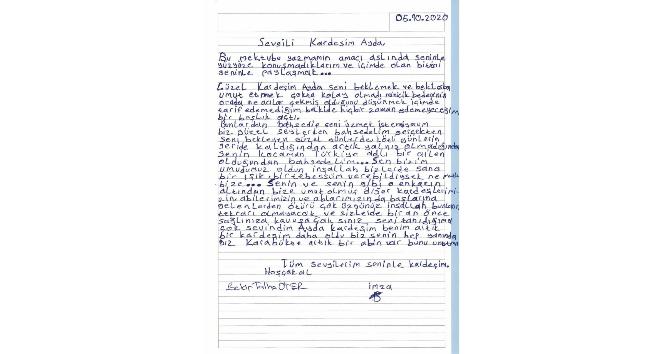 05.10.2020
Sevgili Kardeşim Ayda,
Bu mektubu yazmamın amacı aslında seninle
yüzyüze konuşmadıklarım ve içimde olan biteni
seninle paylaşmak...
Güzel Kardeşim Ayda seni beklemek ve
umut etmek çokta kolay olmadı minik bedeninin
orada ne acılar çekmiş olduğunu düşünmek içimde
tarif edemediğim belkide hiçbir zaman edemeyeceğim
bir boşluk açtı.
Bunlardan bahsedip seni üzmek istemiyorum
biz güzel şeylerden bahsedelim gerçekten
Seni bekleyen güzel günlerden kötü günlerin
geride kaldığından artık yalnız olmadığından
senin kocaman Türkiye adlı bir ailen
olduğundan bahsedelim... Sen bizim
umuğumuz oldun inşallah bizlerde sana
bir ışık bir tebessüm verebildiysek ne mutlu
bize... Senin ve senin gibi o enkazın
altından bize umut olmuş diğer kardeşlerimi-
zin abilerimizin ve ablarımızında başlarına
gelenlerden ötürü çok üzgünüz inşallah bunların
tekrarı olmayacak ve sizlerde bir an önce
sağlınıza kavuşacaksınız, seni tanıdığıma
çok sevindim Ayda kardeşim benim artık
bir kardeşim daha oldu biz senin hep yanında
yız Karabük'te artık bir abin var bunu unutma
Tüm sevgilerim seninle kardeşim.
Hoşçakal
Talha
imza